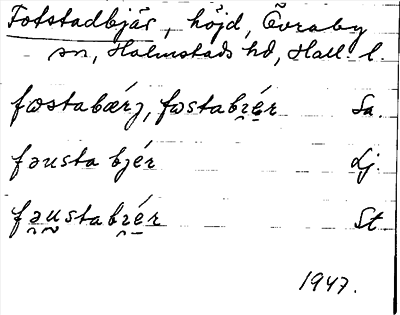 Fotstadbjär, höjd, Övraby
sn, Halmstads hd, Hall. l.
fωstabærj, fωstabɪ̯é̠r Sa.
fəusta bjér Lj.
fə̯u̯stabɪ̯é̠r St
1947.